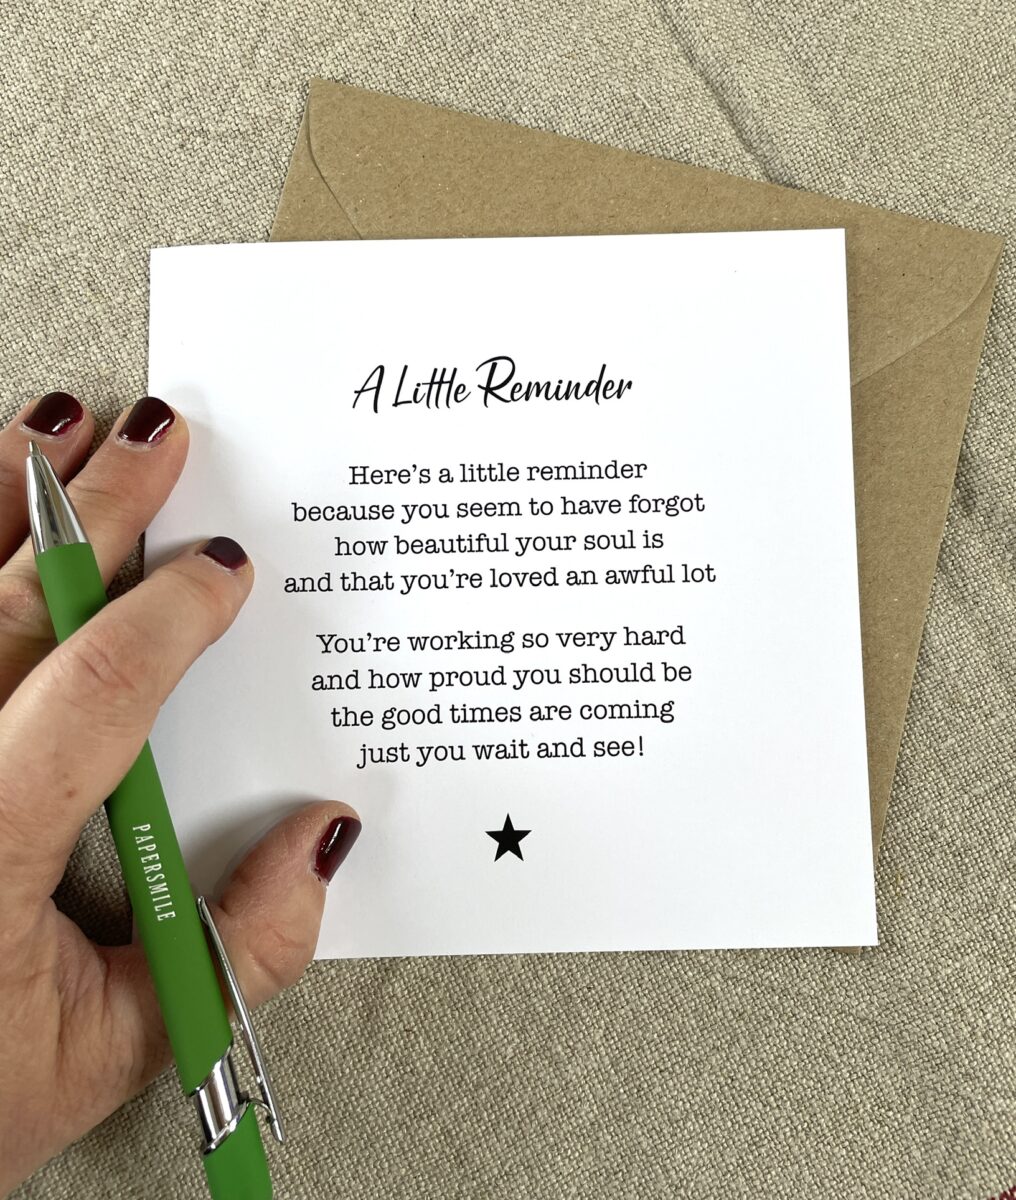 A Little Reminder
Here's a little reminder
because you seem to have forgot
how beautiful your soul is
and that you're loved an awful lot
You're working so very hard
and how proud you should be
the good times are coming
just you wait and see!
PAPERSMILE